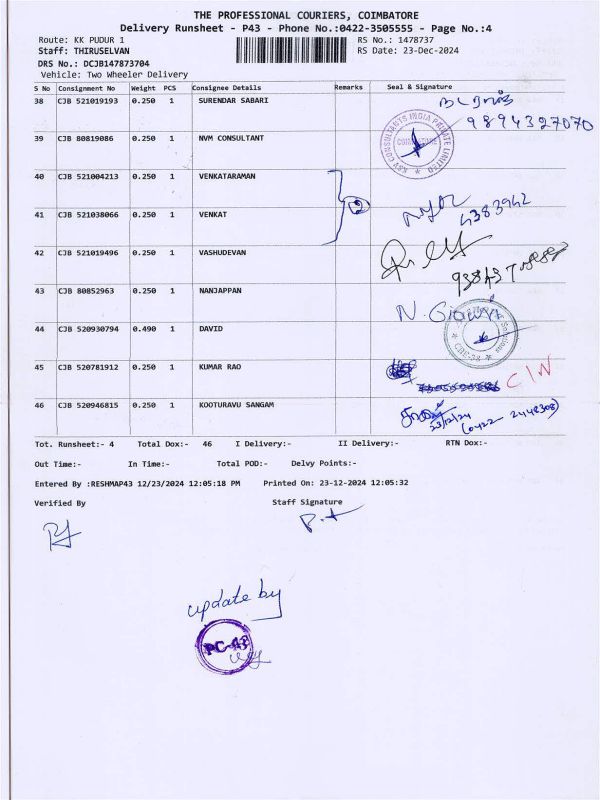 THE PROFESSIONAL COURIERS, COIMBATORE
Delivery Runsheet - P43 - Phone No.:0422-3505555 - Page No.:4
Route: KK PUDUR 1 RS No.: 1478737
Staff: THIRUSELVAN RS Date: 23-Dec-2024
DRS No.: DCJB147873704
Vehicle: Two Wheeler Delivery
S No Consignment No Weight PCS Consignee Details Remarks Seal & Signature
38 CJB 521019193 0.250 1 SURENDAR SABARI
9894327070
39 CJB 80819086 0.250 1 NVM CONSULTANT KSV CONSULTANTS INDIA PRIVATE LIMITED
40 CJB 521004213 0.250 1 VENKATARAMAN
2
41 CJB 521038066 0.250 1 VENKAT 4383942
42 CJB 521019496 0.250 1 VASHUDEVAN
43 CJB 80852963 0.250 1 NANJAPPAN N. Gowri
44 CJB 520930794 0.490 1 DAVID CBE-38
45 CJB 520781912 0.250 1 KUMAR RAO C/N
46 CJB 520946815 0.250 1 KOOTURAVU SANGAM
23/12/24
Tot. Runsheet:- 4 Total Dox:- 46 I Delivery:- II Delivery:- RTN Dox:-
Out Time:- In Time:- Total POD:- Delvy Points:-
Entered By :RESHMAP43 12/23/2024 12:05:18 PM Printed On: 23-12-2024 12:05:32
Verified By Staff Signature
update by
PC-43